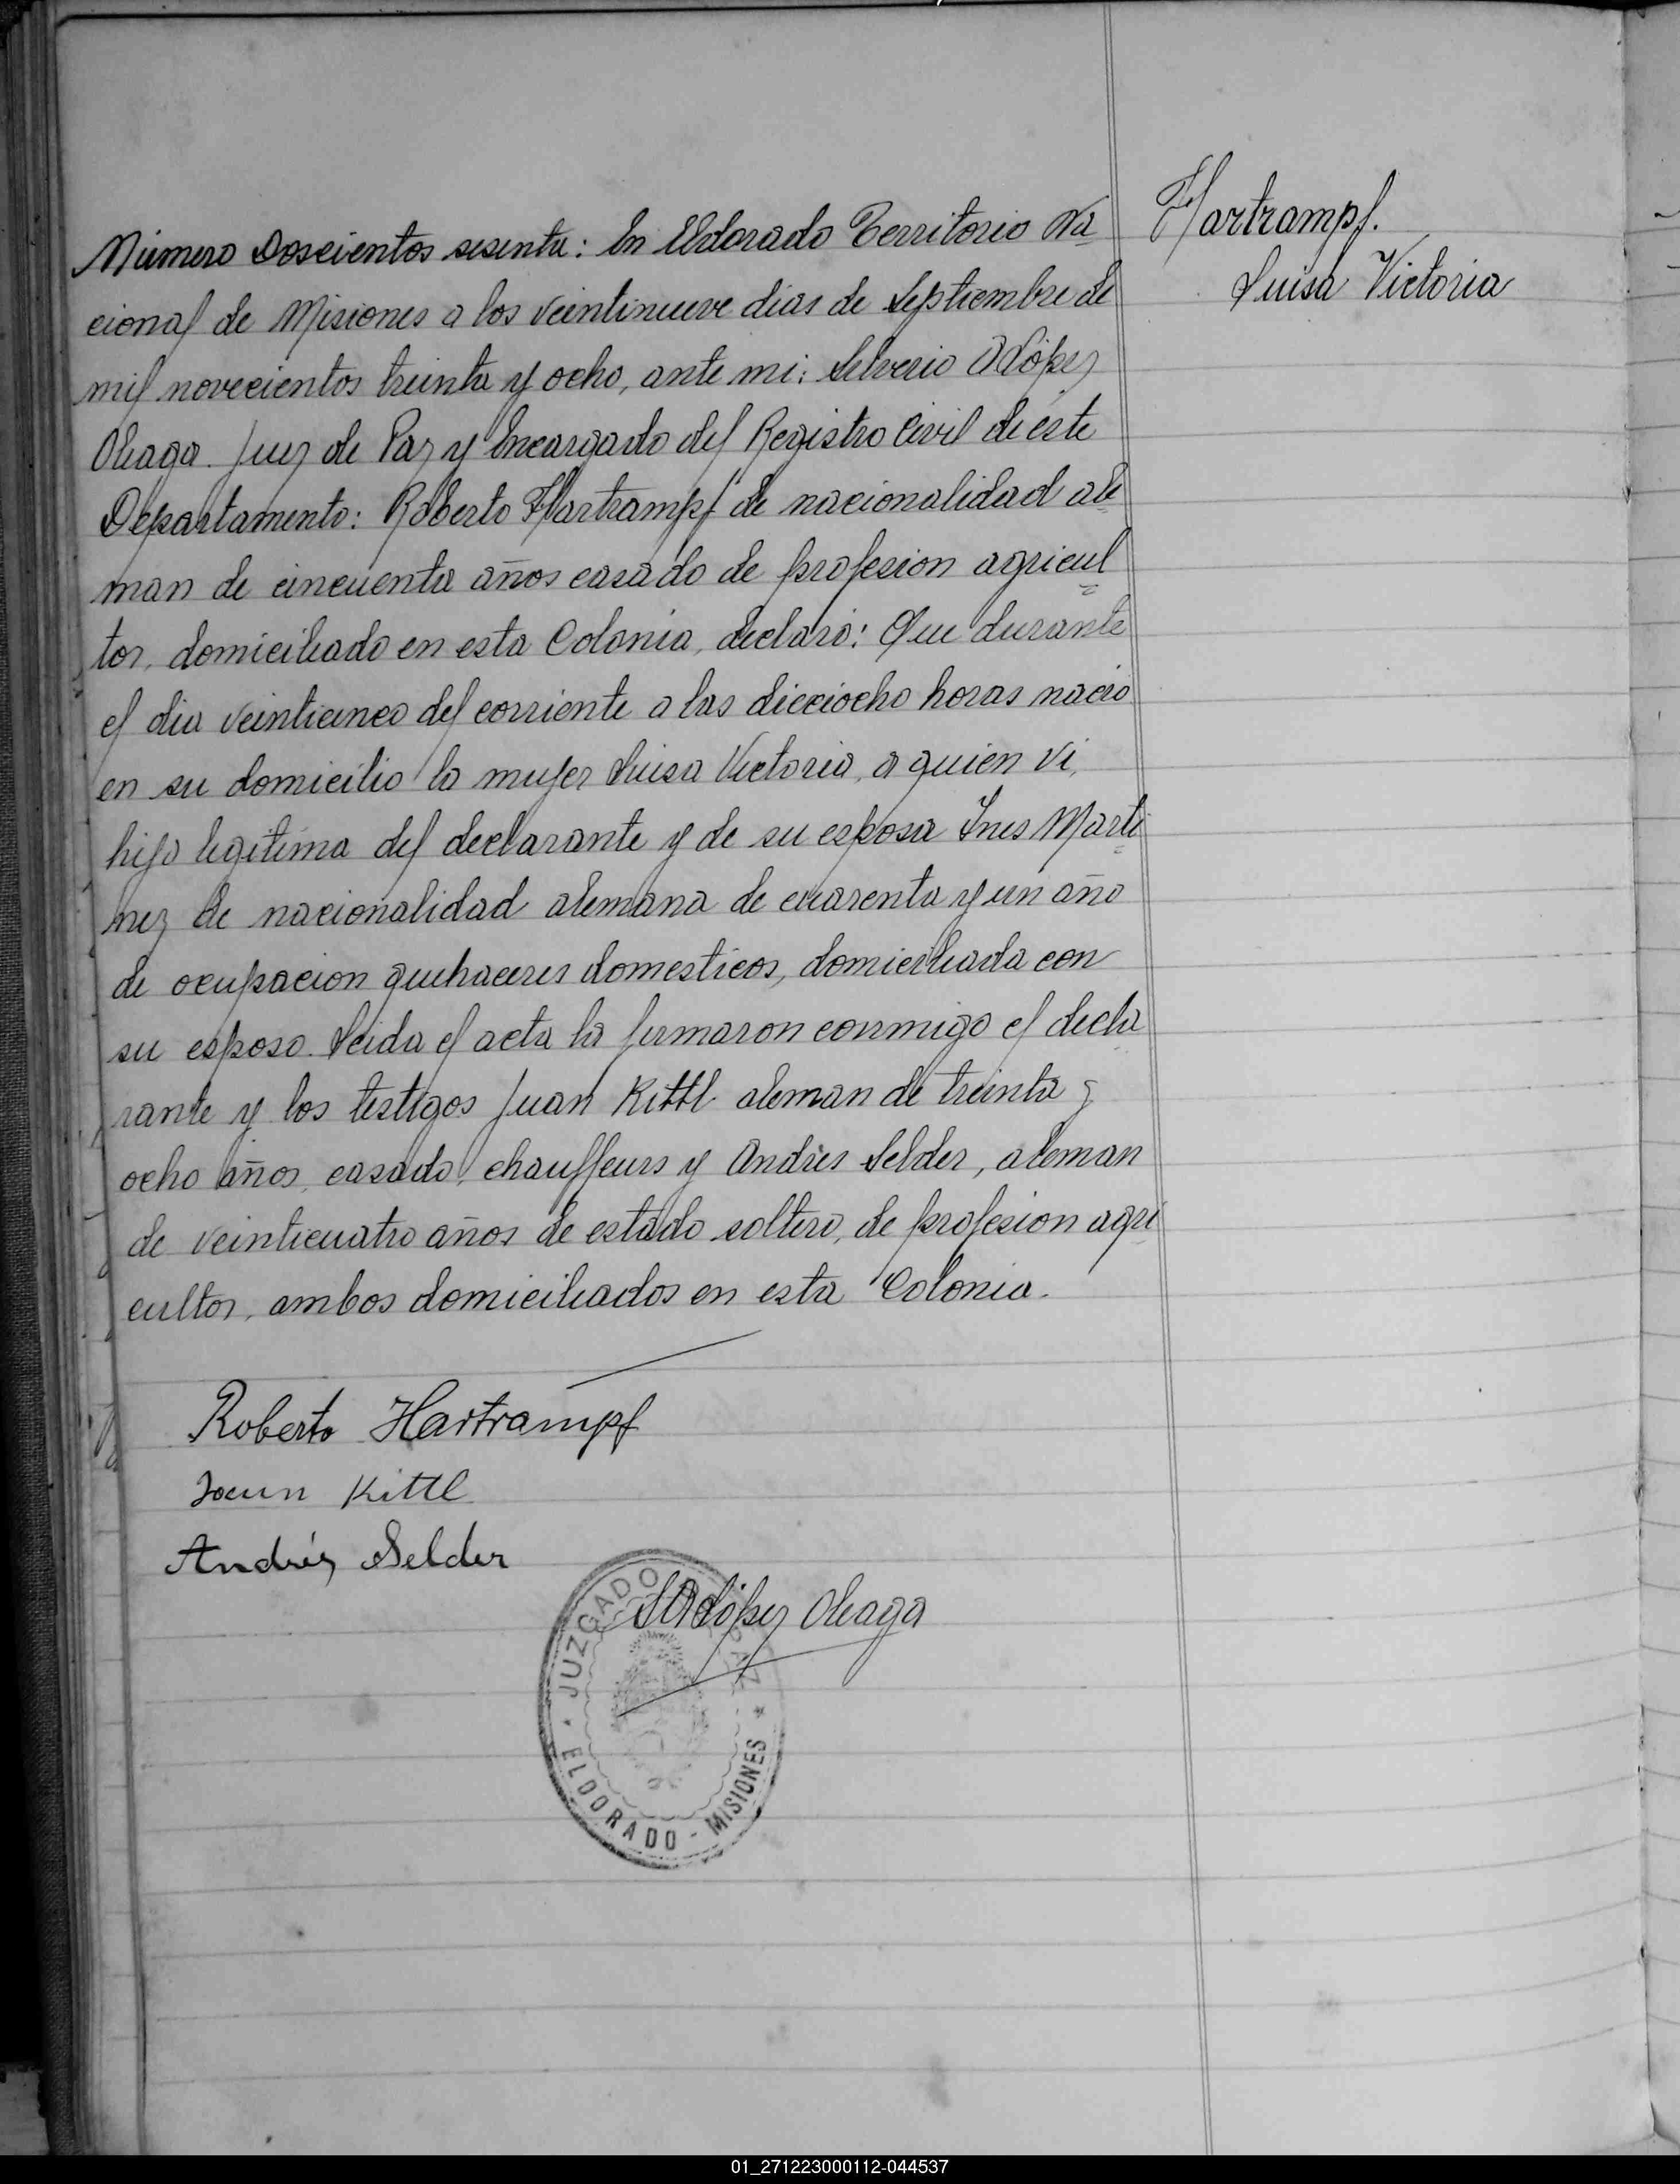 Número Doscientos sesenta: En Eldorado Territorio Na
cional de Misiones a los veintinueve dias de Septiembre de
mil novecientos treinta y ocho, ante mi: Silverio A López
Oleaga. Juez de Paz y Encargado del Registro Civil de éste
Departamento: Roberto Hartrampf de nacionalidad ale
man de cincuenta años casado de profesion agricul
tor, domiciliado en esta Colonia, declaró: Que durante
el dia veinticinco del corriente a las dieciocho horas nació
en su domicilio la mujer Luisa Victoria, a quien vi,
hija legitima del declarante y de su esposa Ines Marti
nez de nacionalidad alemana de cuarenta y un año
de ocupacion quehaceres domesticos, domiciliada con
su esposo. Leida el acta la firmaron conmigo el decla
rante y los testigos Juan Kittl aleman de treinta y
ocho años, casado, chauffeurs y Andrés Selder, aleman
de veinticuatro años de estado soltero, de profesion agri
cultor, ambos domiciliados en esta Colonia.
Hartrampf.
Luisa Victoria
Roberto Hartrampf
Juan Kittl
Andrés Selder
SALópez Oleaga
JUZGADO DE PAZ
ELDORADO - MISIONES
01_271223000112-044537